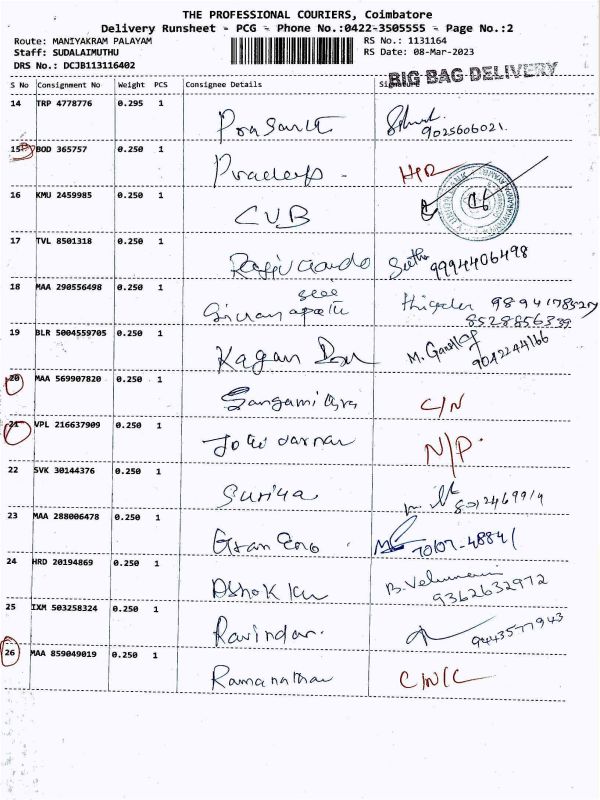 THE PROFESSIONAL COURIERS, Coimbatore
Delivery Runsheet - PCG - Phone No.:0422-3505555 - Page No.:2
Route: MANIYAKRAM PALAYAM RS No.: 1131164
Staff: SUDALAIMUTHU RS Date: 08-Mar-2023
DRS No.: DCJB113116402
BIG BAG DELIVERY
S No Consignment No Weight PCS Consignee Details Signature
14 TRP 4778776 0.295 1 Prasanth
9025606021.
15 BOD 365757 0.250 1 Pradeep - HR
16 KMU 2459985 0.250 1 CUB
17 TVL 8501318 0.250 1 9994406498
18 MAA 290556498 0.250 1 9894178527
8528856339
19 BLR 5004559705 0.250 1 Kagan
9042244166
20 MAA 569907820 0.250 1 C/N
21 VPL 216637909 0.250 1 N/P.
22 SVK 30144376 0.250 1 Suriya
23 MAA 288006478 0.250 1 70107-48841
24 HRD 20194869 0.250 1 Ashok B. Velumani
9362632972
25 IXM 503258324 0.250 1 Ravindar. 9443577943
26 MAA 859049019 0.250 1 Ramanathan C/N/C